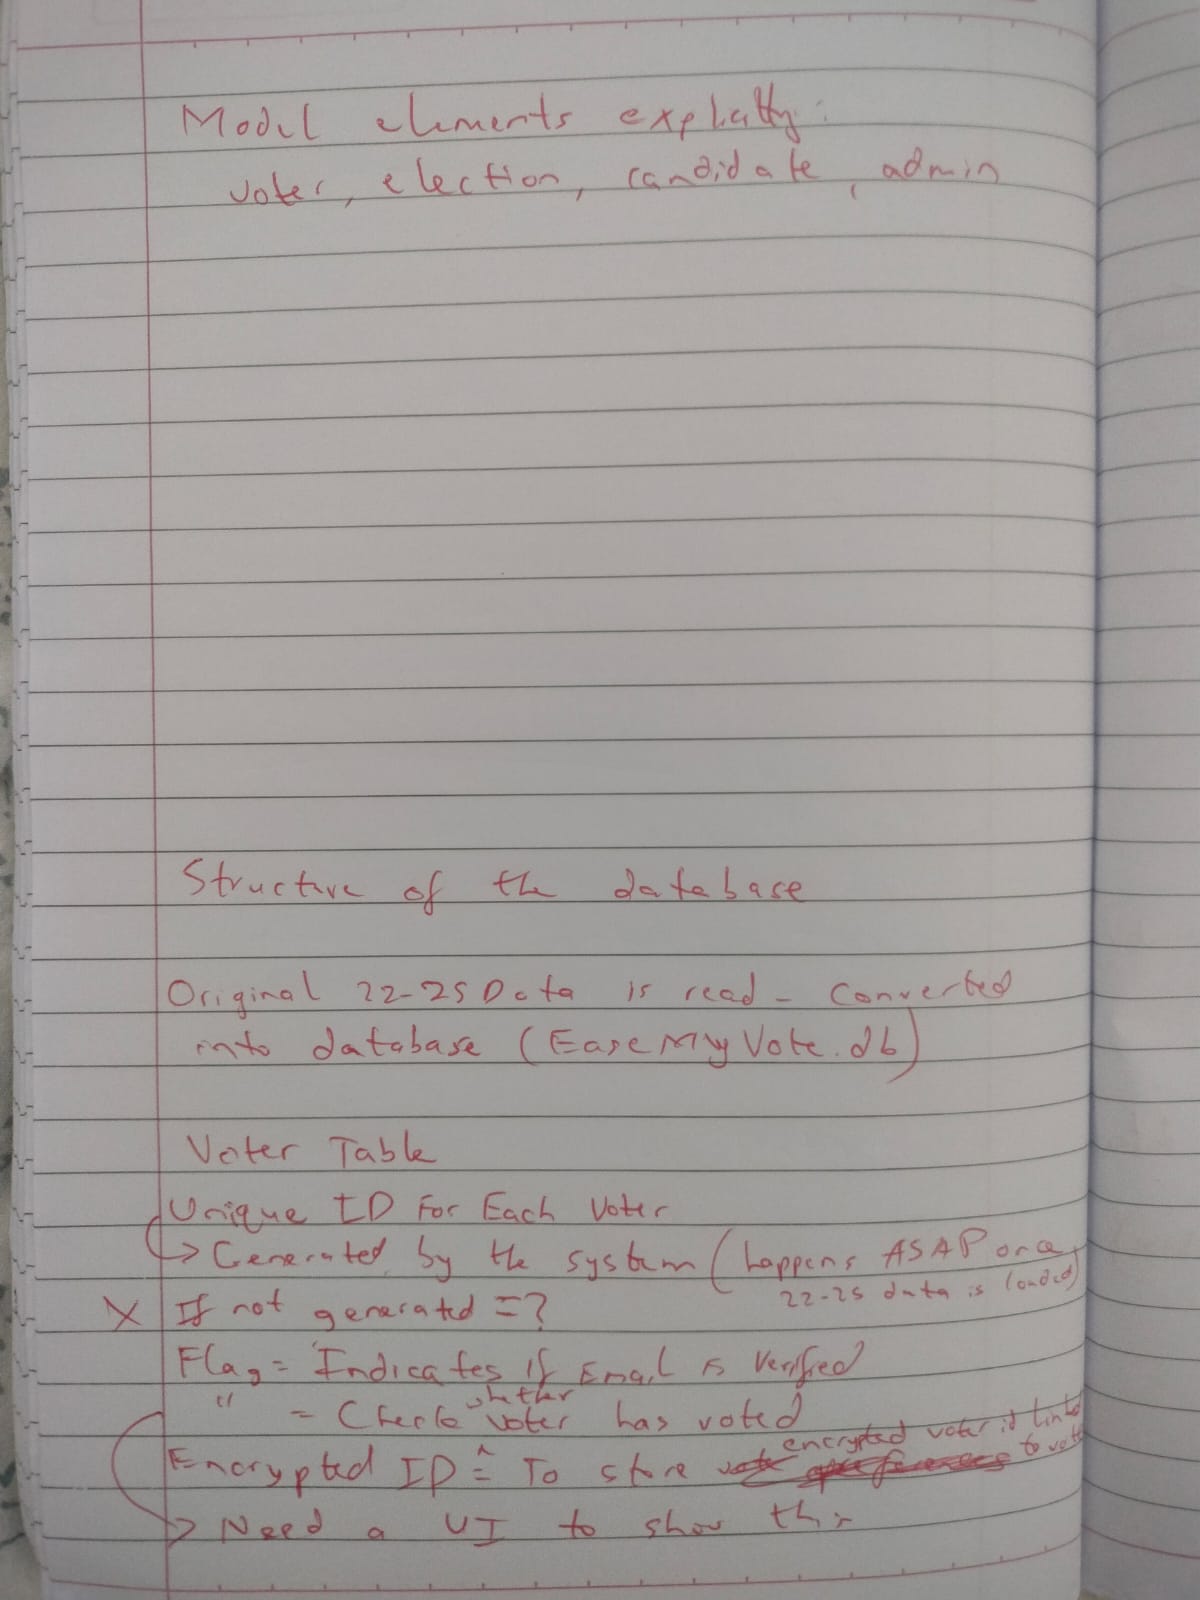 Model elements explicitly:
voter, election, candidate, admin
Structure of the database
Original 22-25 Data is read - converted
into database (EaseMyVote.db)
Voter Table
Unique ID For Each Voter
→ Generated by the system (happens ASAP once
22-25 data is loaded)
X If not generated = ?
Flag = Indicates if Email is Verified
" = Checks whether voter has voted
encrypted voter id linked
Encrypted ID = To store to vote
→ Need a UI to show this